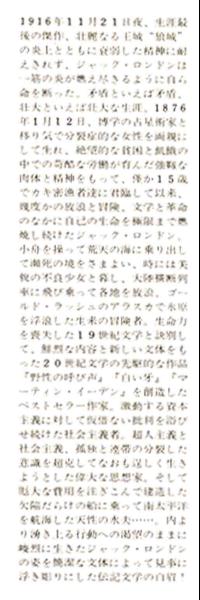 1916年11月21日夜、生涯最
後の傑作、壮麗なる王城“狼城”
の炎上とともに衰弱した精神に耐
えきれず、ジャック・ロンドンは
一筋の炎が燃え尽きるように自ら
命を断った。矛盾といえば矛盾、
壮大といえば壮大な生涯。1876
年1月12日、博学の占星術家と
移り気で分裂症的な女性を両親に
して生れ、絶望的な貧困と飢餓の
中での苛酷な労働が育んだ強靱な
肉体と精神をもって、僅か15歳
でカキ密漁者達に君臨して以来、
幾度かの放浪と冒険、文学と革命
のなかに自己の生命を極限まで燃
焼し続けたジャック・ロンドン。
小舟を操って荒天の海に乗り出し
て瀕死の境をさまよい、時には美
貌の不良少女と暮し、大陸横断列
車に飛び乗って各地を放浪。ゴー
ルド・ラッシュのアラスカで氷原
を浮浪した生来の冒険者。生命力
を喪失した19世紀文学と訣別し
て、鮮烈な内容と新しい文体をも
った20世紀文学の先駆的な作品
『野性の呼び声』『白い牙』『マ
ーティン・イーデン』を創造した
ベストセラー作家。激動する資本
主義に対して仮借ない批判を浴び
せ続けた社会主義者。超人主義と
社会主義、孤独と連帯の分裂した
意識を超克してなおも逞しく生き
ようとした偉大な思想家。そして
厖大な費用を注ぎこんで建造した
欠陥だらけの船に乗って南太平洋
を航海した天性の水夫……。内よ
り湧き上る行動への渇望のままに
峻烈に生きたジャック・ロンドン
の姿を簡潔な文体によって見事に
浮き彫りにした伝記文学の白眉！